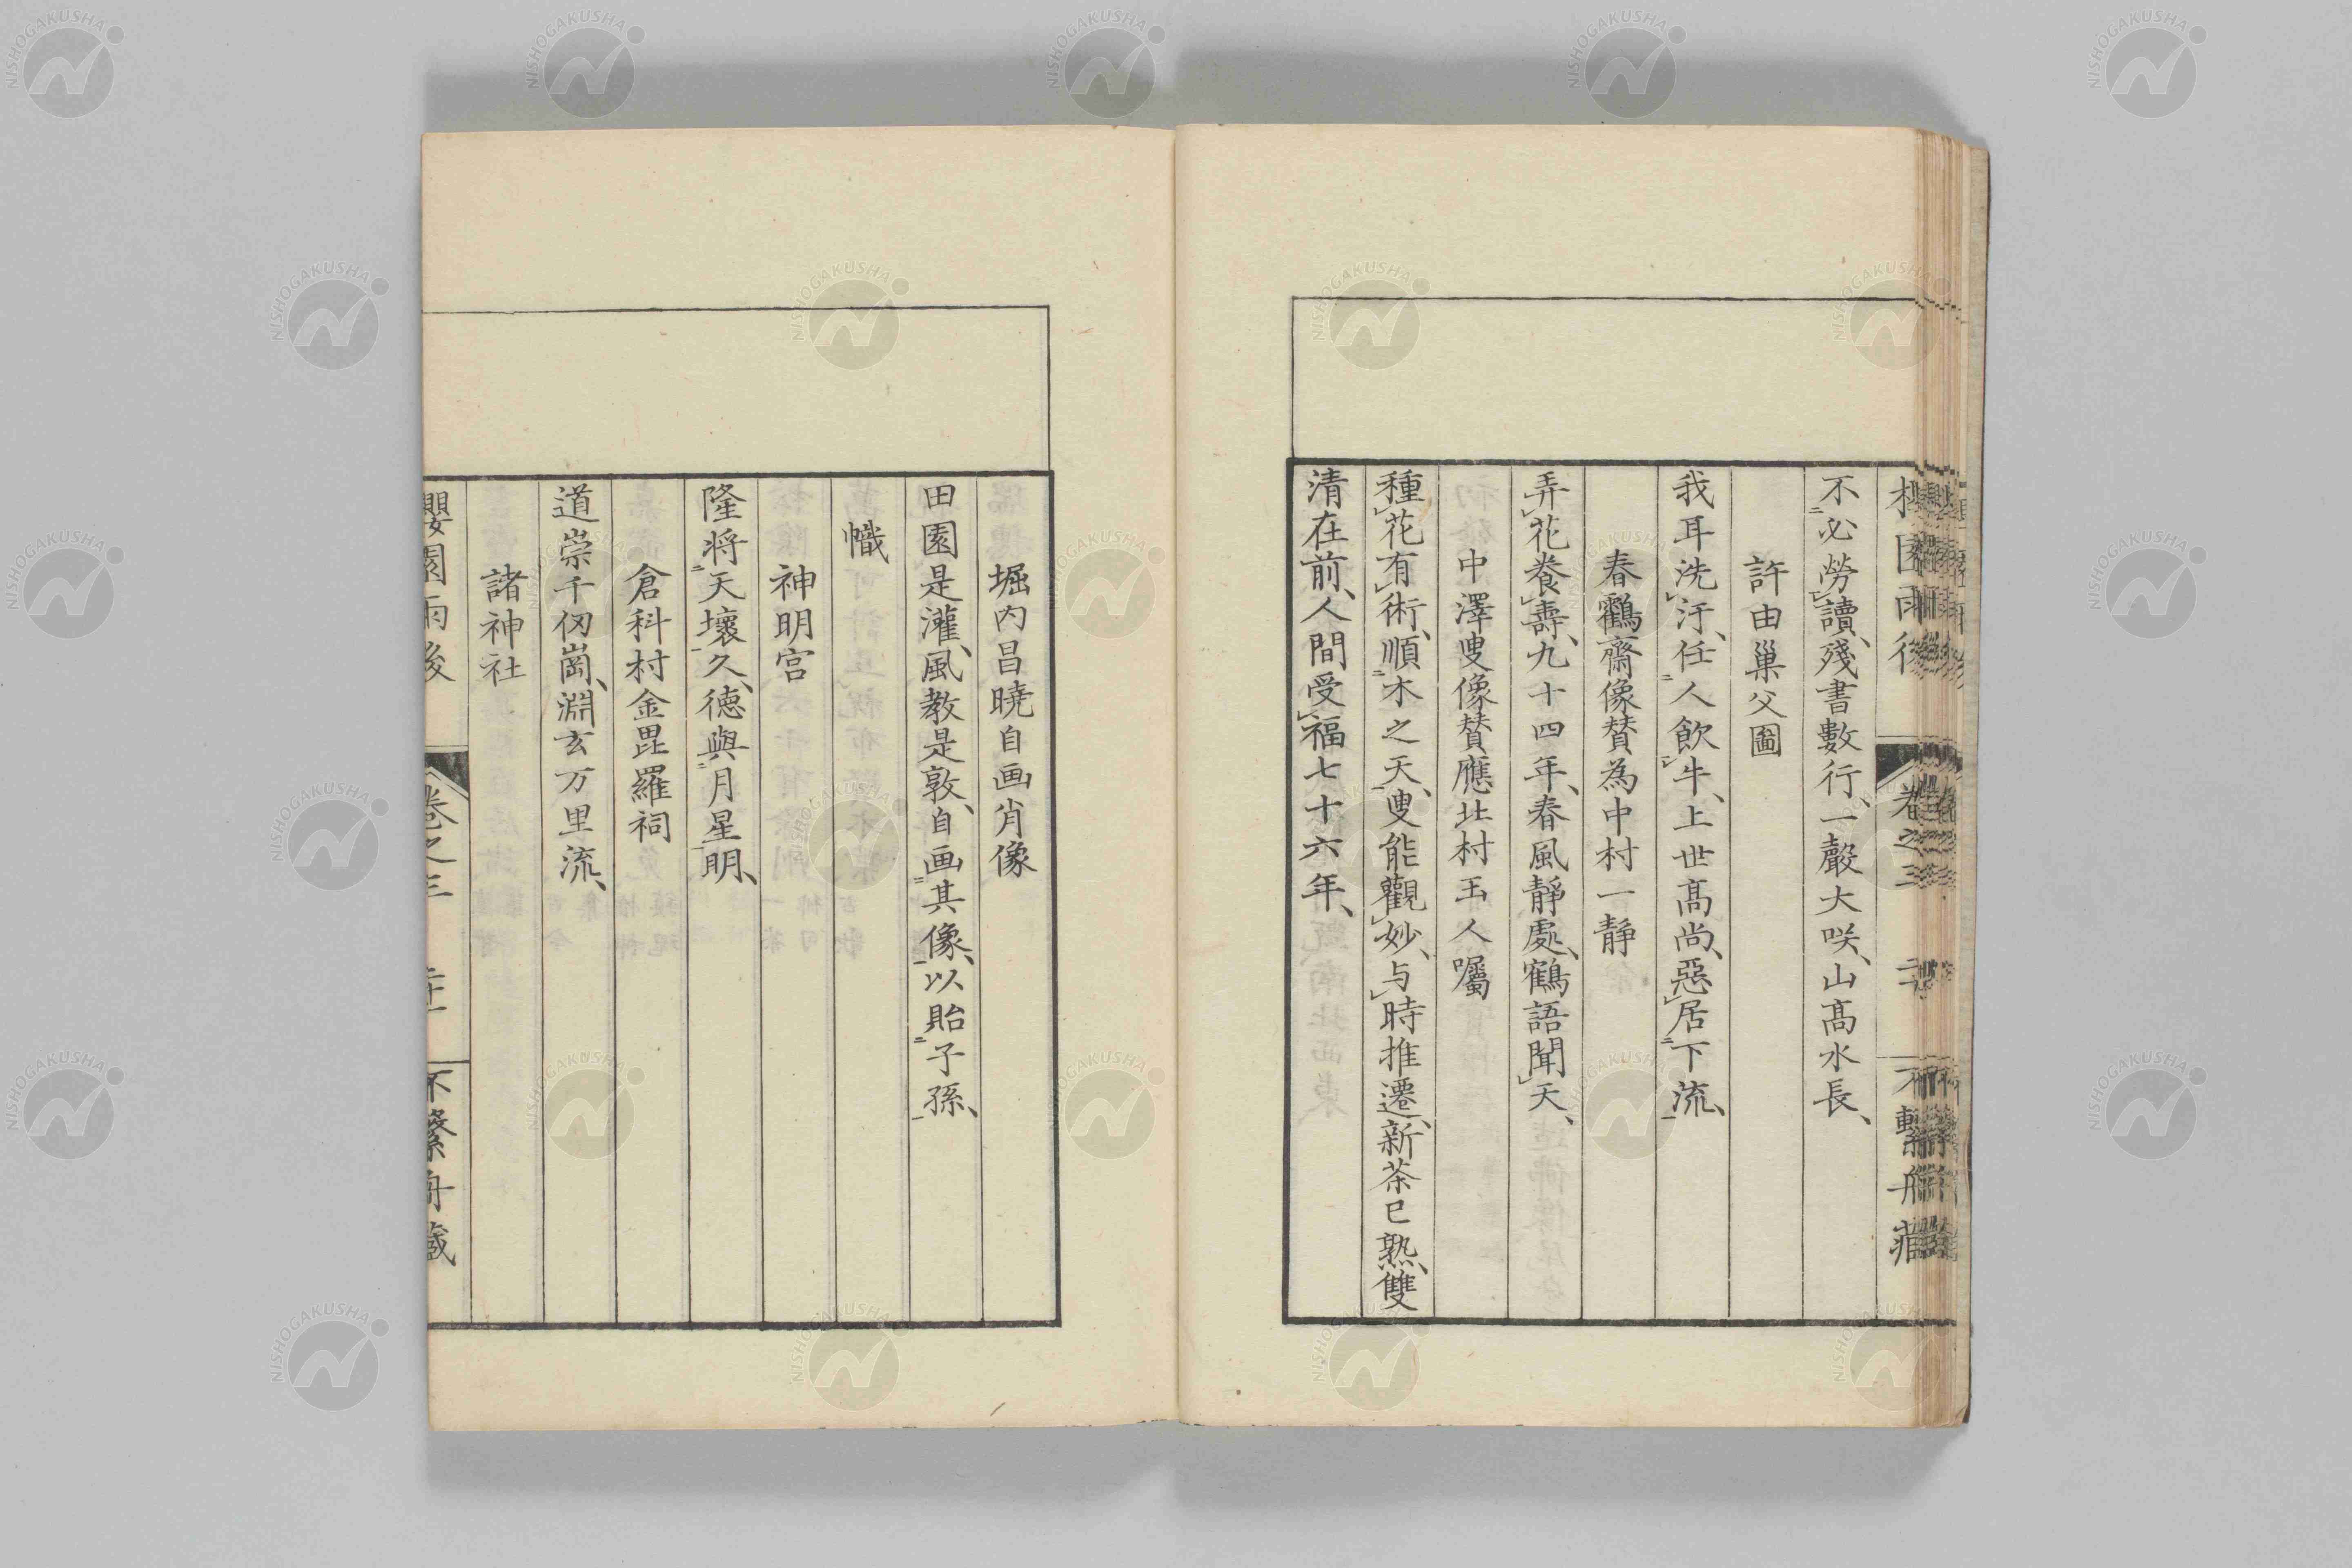 不必勞讀、殘書數行、一聲大咲、山髙水長、
許由巢父圖
我耳洗汙、任人飲牛、上世髙尚、惡居下流、
春鸖齋像賛為中村一靜
弄花養壽、九十四年、春風靜處、鶴語聞天、
中澤叟像賛應北村玉人囑
種花有術、順木之天、叟能觀妙、与時推遷、新茶已熟、雙
清在前、人間受福七十六年、
堀内昌曉自画肖像
田園是灌、風教是敦、自画其像、以貽子孫、
幟
神明宮
隆将天壤久、德與月星明、
倉科村金毘羅祠
道崇千仭崗、淵玄万里流、
諸神社
櫻園雨後 卷之三 不繫舟藏
NISHOGAKUSHA